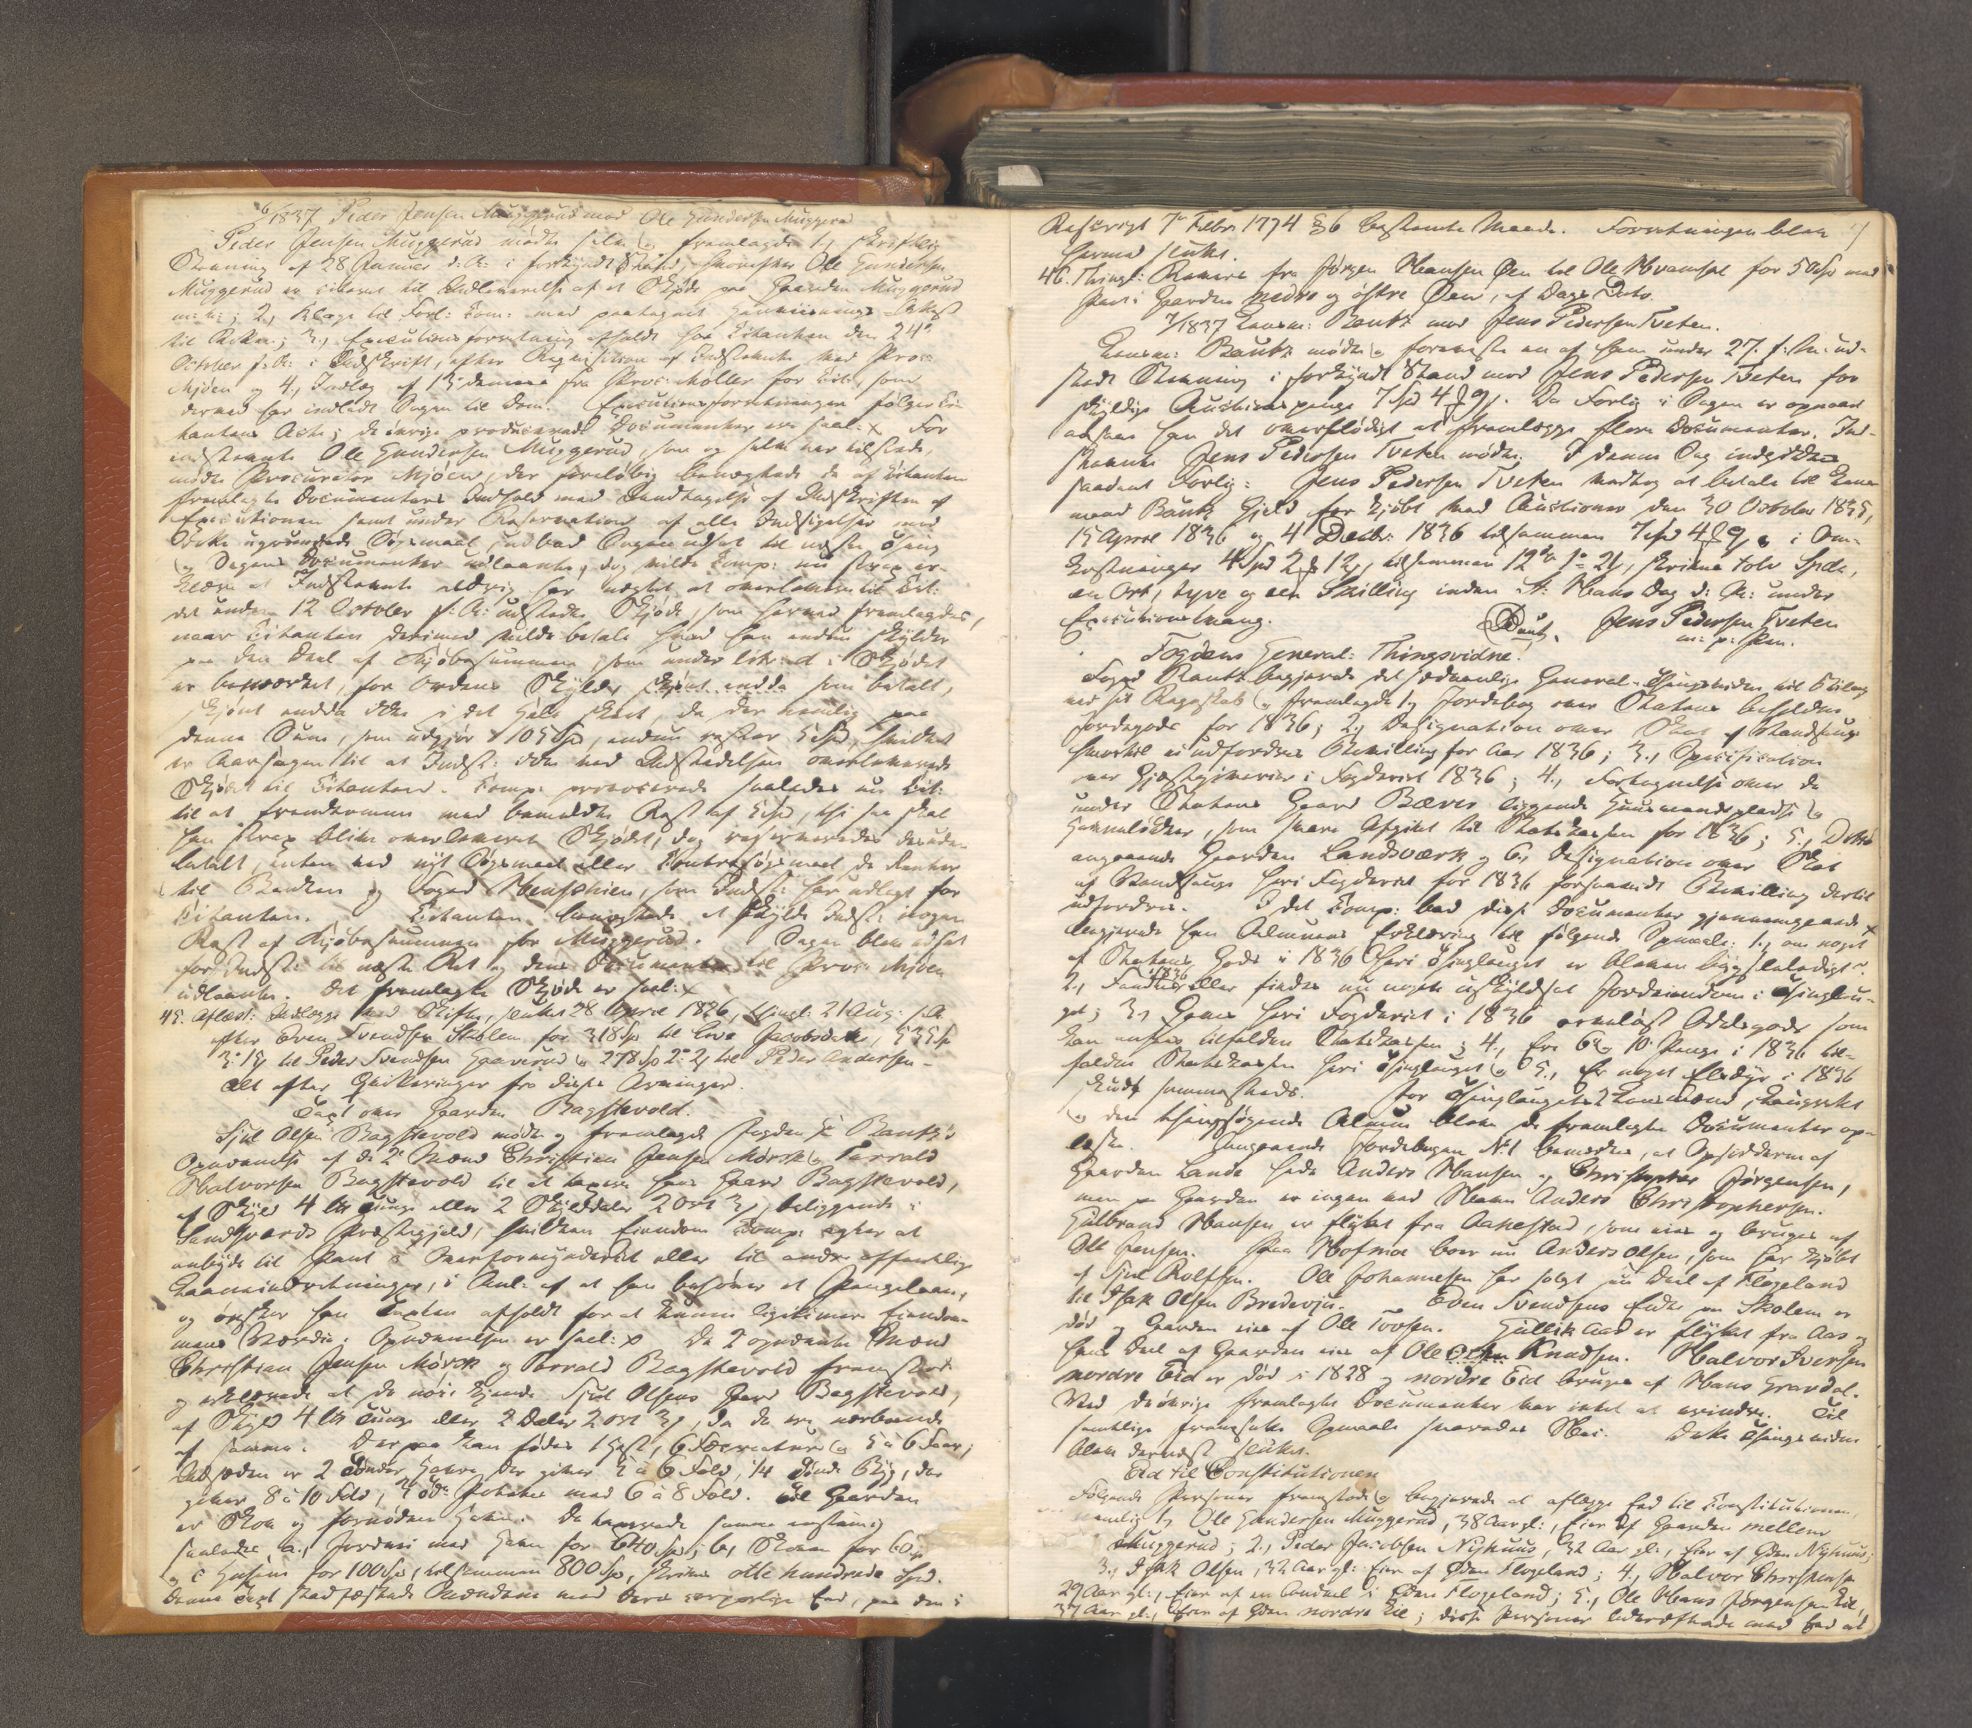 6/1837 Peder Jensen Muggerud mod Ole Gundersen Muggerud
Peder Jensen Muggerud mødte selv og fremlagde 1, skriftlig
Stevning af 28 Januar d: A: i forkyndt Stand, hvorefter Ole Gundersen
Muggerud er citeret til Udleverelse af et Skjøde paa Gaarden Muggerud
m: m:; 2, Klage til Forl: Com: med paategnet Henviisnings Attest
til Retten; 3, Executionsforretning afholdt hos Citanten den 24de
October f: A: i Udskrift, efter Reqvisition af Indstevnte ved Proc:
Mjøen og 4, Indlæg af 13 dennes fra Proc: Møller for Cit:, som
derved har indladt Sagen til Dom. Executionsforretningen følger Ci-
tantens Acter; de øvrige producerede Documenter ere saal: x For
indstevnte Ole Gundersen Muggerud, som og selv var tilstede,
mødte Procurator Mjøen, der foreløbig benegtede de af Citanten
fremlagte Documenters Indhold med Undtagelse af Udskriften af
Executionen samt under Reservation af alle Indsigelser mod
dette ugrundede Søgsmaal, udbad Sagen udsat til næste Thing
og Sagens Documenter udlaante, dog vilde Comp: nu strax er-
klære at Indstevnte aldrig har nægtet at overlevere til Cit:
det under 12 October f: A: udstedte Skjøde, som herved fremlagdes,
naar Citanten derimod vilde betale hvad han endnu skylder
paa den Deel af Kjøbesummen, som under litr: d i Skjødet
er bemærket, for Ordens Skyld, skjønt endda som betalt,
skjønt endda ikke i det Hele skeet, da der nemlig paa
denne Sum, som udgjør 105 Spd, endnu rester 5 Spd, hvilket
er Aarsagen til at Indst: ikke ved Udstedelsen overleverede
Skjødet til Citanten. Comp: provocerede saaledes nu Cit:
til at fremkomme med bemeldte Rest af 5 Spd, thi saa skal
han strax blive overleveret Skjødet, dog reserveredes desuden
betalt, enten ved nyt Søgsmaal eller Contrasøgsmaal, de Renter
til Banken og Foged Stensethien, som Indst: har udlagt for
Citanten. Citanten benegtede at skylde Indst: nogen
Rest af Kjøbesummen for Muggerud. Sagen blev udsat
for Indst: til næste Ret og dens Documenter til Proc: Mjøen
udlaante. Det fremlagte Skjøde er saal: x
45. Aflæst: Udlæg ved Skifte, sluttet 28 April 1826, thingl: 21 Aug: s: A:
efter Even Svendsen Skolem for 318 Sp til Live Jacobsdatter, 535 Sp
3: 15 til Peder Svendsen Haaverud og 278 Sp 2: 2 til Peder Andersen –
Alt efter Qvitteringer fra disse Arvinger.
Taxt over Gaarden Bagstevold.
Syver Olsen Bagstevold mødte og fremlagde Fogden Hr Rantz's
Opnævnelse af de 2de Mænd Christian Jensen Mørck og Torvald
Halvorsen Bagstevold til at taxere hans Gaard Bagstevold,
af Skyld 4 Lis: Tunge eller 2 Skylddaler 2 Ort 3 s, beliggende i
Sandsværds Præstegjeld, hvilken Eiendom Comp: agter at
anbyde til Pant i Overformynderiet eller til andre offentlige
Laaneindretninger, i Anl: af at han behøver et Pengelaan,
og ønsker han Taxten afholdt for at kunne legitimere Eiendom-
mens Værdie. Opnævnelsen er saal: x De 2 opnævnte Mænd
Christian Jensen Mørck og Torvald Bagstevold fremstod
og erklærede at de nøie kjende Syver Olsens Gaard Bagstevold,
af Skyld 4 Lis Tunge eller 2 Daler 2 Ort 3 s, da de ere nærboende
af samme. Der paa kan fødes 1 Hest, 6 Fæcreaturer og 5 à 6 Faar;
Udsæden er 2 Tønder Havre, der giver 5 à 6 Fold, 1/4 Tønde Byg, der
giver 8 à 10 Fold, 4 Tdr Poteter med 6 à 8 Fold. Til Gaarden
er Skov og fornøden Havn. De taxerede samme eenstemmig
saaledes a, Jordvei med Havn for 640 Spd; b, Skoven for 60
og c Husene for 100 Spd, tilsammen 800 Spd, skriver otte hundrede Spd.
Denne Taxt stadfæstede Mændene med deres corporlige Eed, paa den i
Rescript 7de Febr 1774 § 6 bestemte Maade. Forretningen blev
hermed sluttet. 7
46. Thingl: Revers fra Jørgen Hansen Øen til Ole Hvamsal for 50 Sp med
Pant i Gaarden nedre og østre Øen, af Dags Dato.
7/1837 Lensm: Bautz mod Jens Pedersen Tveten.
Lensm: Bautz mødte og foreviste en af ham under 27. f: M: ud-
stedt Stevning i forkyndt Stand mod Jens Pedersen Tveten for
skyldige Auctionspenge 7 Spd 4 ₰ 9 s. Da Forlig i Sagen er opnaaet
ansaae han det overflødigt at fremlægge flere Documenter. Ind-
stevnte Jens Pedersen Tveten mødte. I denne Sag indgikkes
saadant Forlig: Jens Pedersen Tveten vedtog at betale til Lens-
mand Bautz Gjeld for Kjøbt ved Auctioner den 30 October 1835,
15 April 1836 og 4 Decbr: 1836 tilsammen 7 Spd 4 ₰ 9 s i Om-
kostninger 4 Spd 2 ₰ 12 s, tilsammen 12 Sp 1 – 21, skriver tolv Spdr,
en Ort, tyve og een Skilling inden St: Hans Dag d: A: under
Executionstvang.
Bautz. Jens Pedersen Tveten
m: p: Pen.
Fogdens General: Thingsvidne.
Foged Rantz begjerede det sædvanlige General-Thingsvidne til Bilag
ved sit Regnskab og fremlagde 1, Jordebog over Statens beholdne
Jordegods for 1836; 2, Designation over Skat af Vandsauge
hvortil ei udfordres Bevilling for Aar 1836; 3, Specification
over Gjæstgiverier i Fogderiet 1836; 4, Fortegnelse over de
under Statens Gaard Bæver liggende Huusmandspladse og
Havneløkker, som svare Afgift til Statskassen for 1836; 5, Ditto
angaaende Gaarden Landsværk og 6, Designation over Skat
af Vandsauge heri Fogderiet for 1836 forsaavidt Bevilling dertil
udfordres. I det Comp: bad disse Documenter gjennemgaaede x
begjerede han Almuens Erklæring til følgende Spmaale: 1, om noget
af Statens Gods i 1836 heri Thinglauget er bleven bygselledigt?
2, Fandtes i 1836 eller findes nu nogen uskyldsat Jordeiendom i Thinglau-
get; 3, Gaves heri Fogderiet i 1836 arveløst Odelsgods som
kan ansees tilfalden Statskassen; 4, Ere 6te og 10de Penge i 1836 til-
falden Statskassen heri Thinglauget og 5, Er noget Elsdyr i 1836
skudt sammesteds. For Thinglaugets Lensmænd, Laugrettet
og den thingsøgende Almue bleve de fremlagte Documenter op-
læste. Angaaende Jordebogen No 1 bemærkes, at Opsidderne af
Gaarden Lande hede Anders Hansen og Christopher Jørgensen,
men paa Gaarden er ingen ved Navn Anders Christophersen.
Gulbrand Hansen er flyttet fra Aakestad, som eies og bruges af
Ole Jensen. Paa Hofmoe boer nu Anders Olsen, som har kjøbt
af Syver Rolfsen. Ole Johannesen har solgt sin Deel af Flogeland
til Isak Olsen Bredevju. Even Svendsens Enke paa Skolem er
død og Gaarden eies af Ole Tovsen. Gullik Aas er flyttet fra Aas og
hans Deel af Gaarden eies af Ole Knudsen. Halvor Iversen
nordre Eid er død i 1828 og nordre Eid bruges af Hans Gravdal.
Ved de øvrige fremlagte Documenter var intet at erindre. Til
samtlige fremsatte Spmaale svaredes Nei. Dette Thingsvidne
blev dernæst sluttet.
Eed til Constitutionen
Følgende Personer fremstode og begjerede at aflægge Eed til Constitutionen,
nemlig 1, Ole Gundersen Muggerud, 38 Aar gl:, Eier af Gaarden mellem
Muggerud; 2, Peder Jacobsen Nyhuus, 32 Aar gl:, Eier af Gden Nyhuus;
3, Isak Olsen, 32 Aar gl: Eier af Gden Flogeland; 4, Halvor Christensen
29 Aar gl:, Eier af en Andeel i Gden Flogeland; 5, Ole Hans Jørgensen Eid,
37 Aar gl:, Eier af Gden nordre Eie; disse Personer bekræftede med Eed at